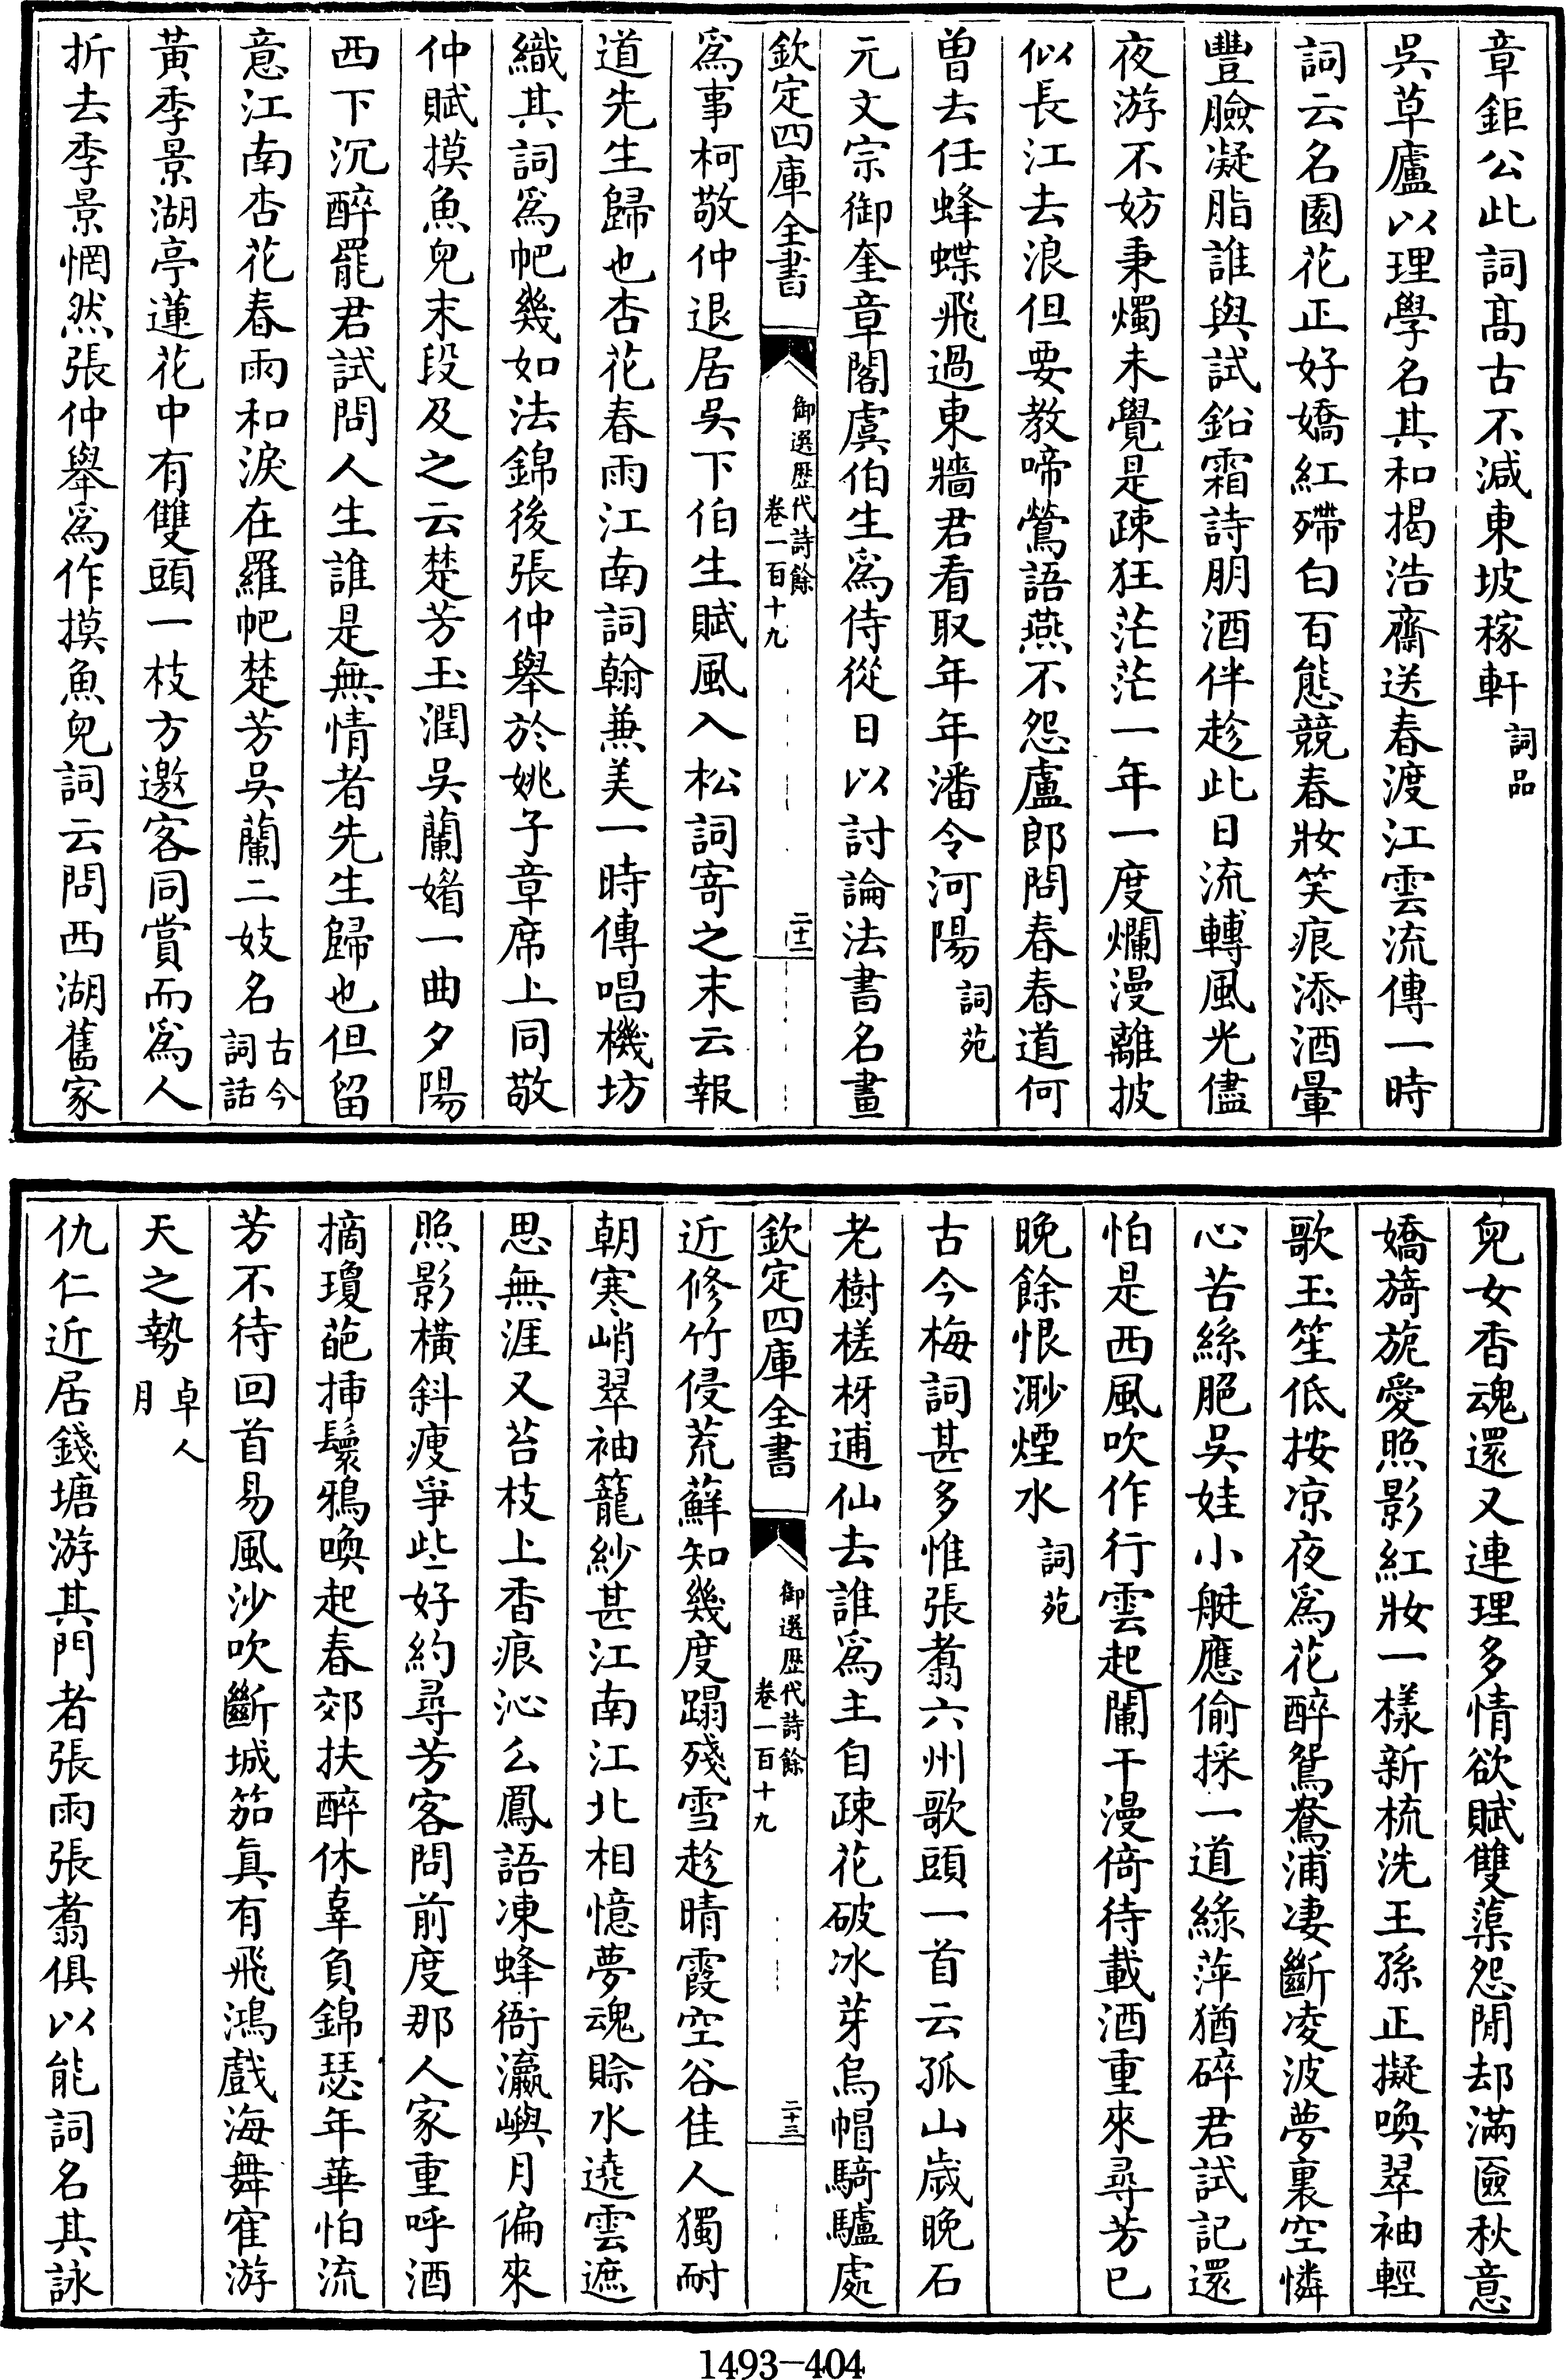 章鉅公此詞髙古不減東坡稼軒詞品
吳草廬以理學名其和揭浩齋送春渡江雲流傳一時
詞云名園花正好嬌紅殢白百態競春妝笑痕添酒暈
豐臉凝脂誰與試鉛霜詩朋酒伴趁此日流轉風光儘
夜游不妨秉燭未覺是疎狂茫茫一年一度爛漫離披
似長江去浪但要教啼鶯語燕不怨盧郎問春春道何
曾去任蜂蝶飛過東牆君看取年年潘令河陽詞苑
元文宗御奎章閣虞伯生爲侍從日以討論法書名畫
欽定四庫全書 御選歴代詩餘 卷一百十九 二十二
爲事柯敬仲退居吳下伯生賦風入松詞寄之末云報
道先生歸也杏花春雨江南詞翰兼美一時傳唱機坊
織其詞爲帊幾如法錦後張仲舉於姚子章席上同敬
仲賦摸魚兒末段及之云楚芳玉潤吳蘭媚一曲夕陽
西下沉醉罷君試問人生誰是無情者先生歸也但留
意江南杏花春雨和淚在羅帊楚芳吳蘭二妓名古今詞話
黃季景湖亭蓮花中有雙頭一枝方邀客同賞而爲人
折去季景惘然張仲舉爲作摸魚兒詞云問西湖舊家
兒女香魂還又連理多情欲賦雙蕖怨閒却滿匳秋意
嬌旖旎愛照影紅妝一樣新梳洗王孫正擬喚翠袖輕
歌玉笙低按涼夜爲花醉鴛鴦浦淒斷凌波夢裏空憐
心苦絲脃吳娃小艇應偷採一道綠萍猶碎君試記還
怕是西風吹作行雲起闌干漫倚待載酒重來尋芳已
晚餘恨渺煙水詞苑
古今梅詞甚多惟張翥六州歌頭一首云孤山嵗晚石
老樹槎枒逋仙去誰爲主自疎花破冰芽烏帽騎驢處
欽定四庫全書 御選歴代詩餘 卷一百十九 二十三
近修竹侵荒蘚知幾度蹋殘雪趁晴霞空谷佳人獨耐
朝寒峭翠袖籠紗甚江南江北相憶夢魂賒水遶雲遮
思無涯又苔枝上香痕沁么鳳語凍蜂衙瀛嶼月偏來
照影橫斜瘦爭些好約尋芳客問前度那人家重呼酒
摘瓊葩揷鬟鴉喚起春郊扶醉休辜負錦瑟年華怕流
芳不待回首易風沙吹斷城笳眞有飛鴻戲海舞隺游
天之勢卓人月
仇仁近居錢塘游其門者張雨張翥俱以能詞名其詠
1493-404